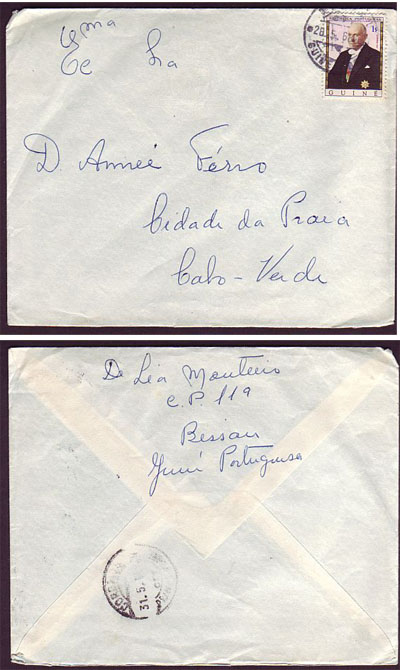 Exma
Sra
D. Aimeé Ferro
Cidade da Praia
Cabo-Verde
26.5.6
GUINÉ
1$
GUINÉ
De Léa Monteiro
C.P. 119
Bissau
Guiné Portuguesa
31.5.